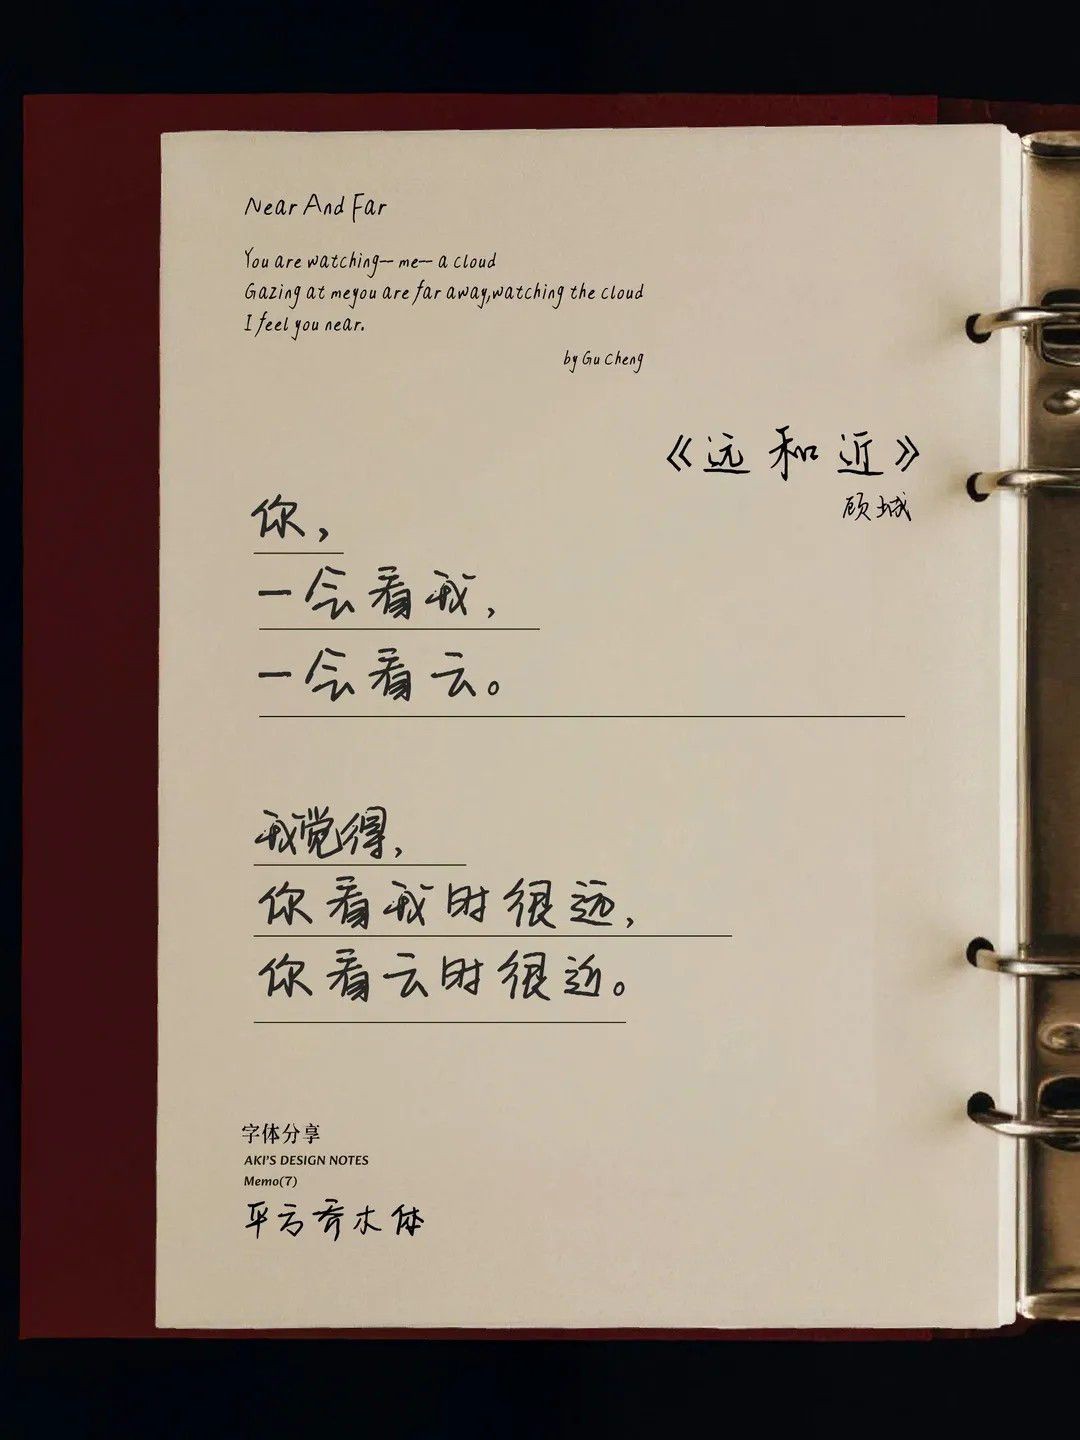 Near And Far
You are watching— me— a cloud
Gazing at meyou are far away,watching the cloud
I feel you near.
by Gu Cheng
《远和近》
顾城
你，
一会看我，
一会看云。
我觉得，
你看我时很远，
你看云时很近。
字体分享
AKI'S DESIGN NOTES
Memo(7)
平方乔木体